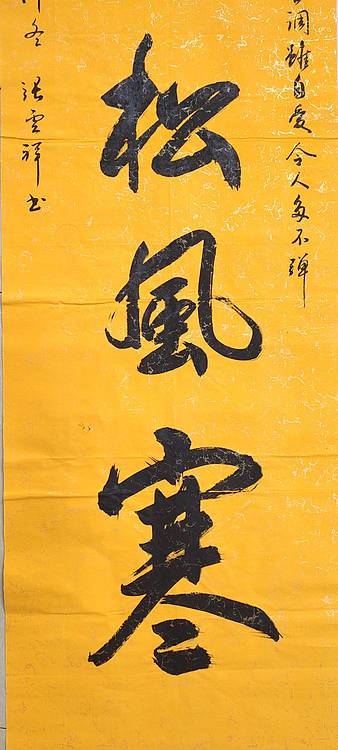 调雖自愛今人多不彈
松風寒
冬 張雲祥书